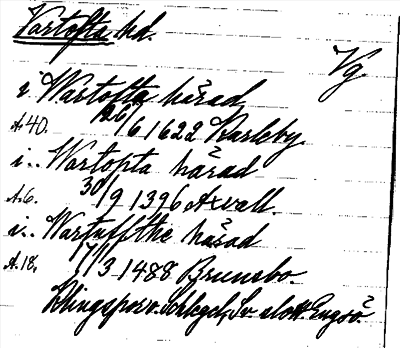 Vartofta hd.
Vg.
i Wartofta härad
A.40. 26/6 1622 Karleby.
i.. Wartopta härad
A.6. 30/9 1396 Axvall.
i.. Wartuffthe härad
A.18. 17/3 1488 Brunsbo.
Klingspor o. Schlegel, Sv. slott. Engsö.